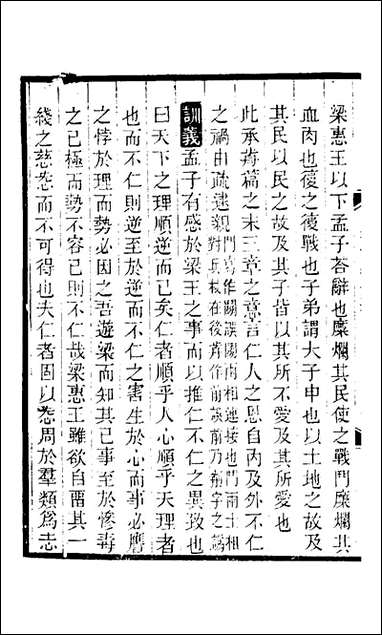 梁惠王以下孟子荅辭也糜爛其民使之戰鬥糜爛其
血肉也復之復戰也子弟謂太子申也以土地之故及
其民以民之故及其子皆以其所不愛及其所愛也
此承前篇之末三章之意言仁人之恩自內及外不仁
之禍由疏逮親
訓義孟子有感於梁王之事而以推仁不仁之異致也
曰天下之理順逆而已矣仁者順乎人心順乎天理者
也而不仁則逆至於逆而不仁之害生於心而事必應
之悖於理而勢必因之吾遊梁而知其已事至於慘毒
之已極而勢不容已則不仁哉梁惠王雖欲自留其一
綫之慈卷而不可得也夫仁者固以卷周於羣類爲志